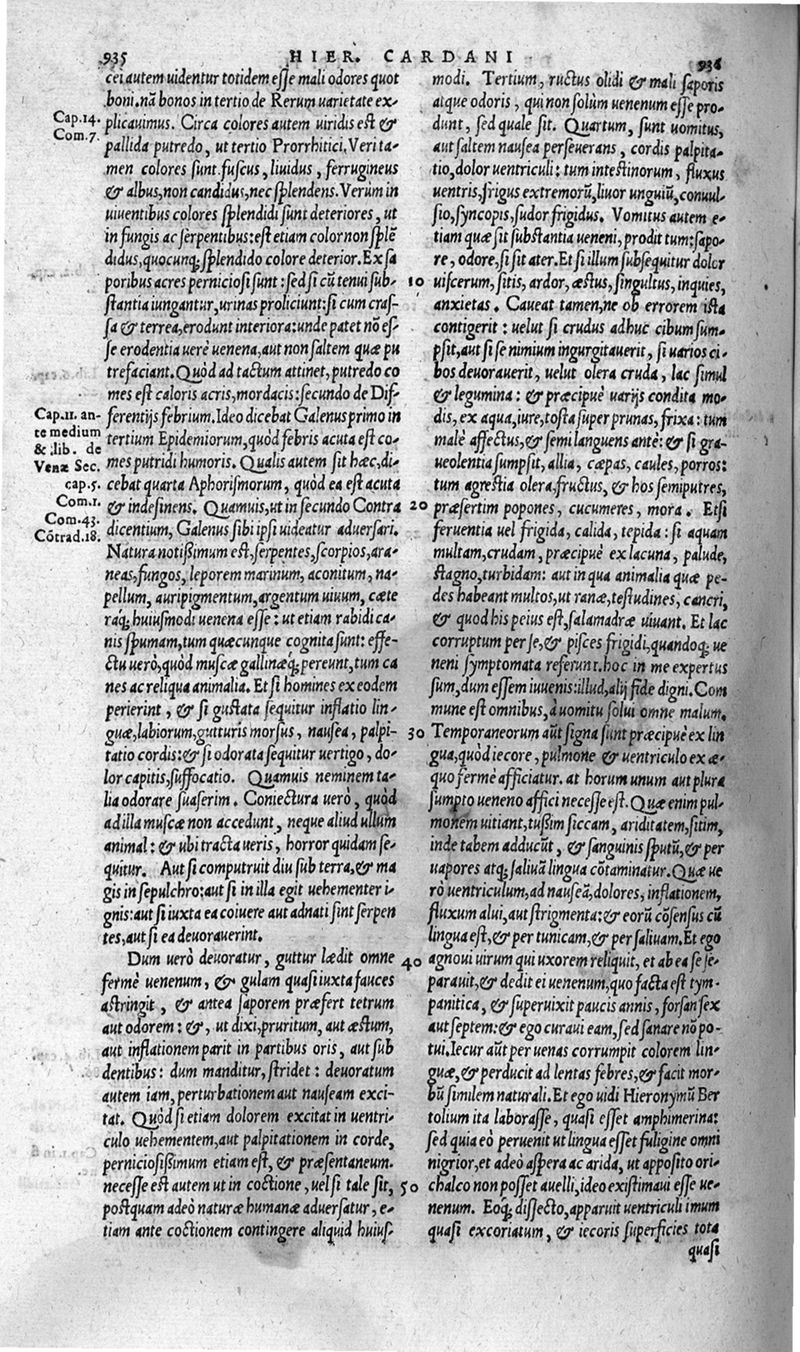 935
HIER. CARDANI
936
cei autem uidentur totidem esse mali odores quot
boni. nã bonos in tertio de Rerum uarietate ex-
plicauimus. Circa colores autem uiridis est &
pallida putredo, ut tertio Prorrhitici. Veri ta-
men colores sunt fuscus, liuidus, ferrugineus
& albus, non candidus, nec splendens. Verùm in
uiuentibus colores splendidi sunt deteriores, ut
in fungis ac serpentibus: est etiam color non splẽ
didus, quocunq; splendido colore deterior. Ex sa
poribus acres perniciosi sunt: sed si cũ tenui sub-
stantia iungantur, urinas proliciunt: si cum cras-
sa & terrea, erodunt interiora: unde patet nõ es-
se erodentia uerè uenena, aut non saltem quæ pu
trefaciant. Quòd ad tactum attinet, putredo co
mes est caloris acris, mordacis: secundo de Dif-
ferentijs febrium. Ideo dicebat Galenus primo in
tertium Epidemiorum, quòd febris acuta est co-
mes putridi humoris. Qualis autem sit hæc, di-
cebat quarta Aphorismorum, quòd ea est acuta
& indesinens. Quamuis, ut in secundo Contra
dicentium, Galenus sibi ipsi uideatur aduersari.
Natura notißimum est, serpentes, scorpios, ara-
neas, fungos, leporem marinum, aconitum, na-
pellum, auripigmentum, argentum uiuum, cæte
raq; huiusmodi uenena esse: ut etiam rabidi ca-
nis spumam, tum quæcunque cognita sunt: effe-
ctu uerò, quòd muscæ gallinæq; pereunt, tum ca
nes ac reliqua animalia. Et si homines ex eodem
perierint, & si gustata sequitur inflatio lin-
guæ, labiorum, gutturis morsus, nausea, palpi-
tatio cordis: & si odorata sequitur uertigo, do-
lor capitis, suffocatio. Quamuis neminem ta-
lia odorare suaserim. Coniectura uerò, quòd
ad illa muscæ non accedunt, neque aliud ullum
animal: & ubi tractaueris, horror quidam se-
quitur. Aut si computruit diu sub terra, & ma
gis in sepulchro: aut si in illa egit uehementer i-
gnis: aut si iuxta ea coiuere aut adnati sint serpen
tes, aut si ea deuorauerint.
Dum uerò deuoratur, guttur lædit omne
fermè uenenum, & gulam quasi iuxta fauces
astringit, & antea saporem præfert tetrum
aut odorem: &, ut dixi, pruritum, aut æstum,
aut inflationem parit in partibus oris, aut sub
dentibus: dum manditur, stridet: deuoratum
autem iam, perturbationem aut nauseam exci-
tat. Quòd si etiam dolorem excitat in uentri-
culo uehementem, aut palpitationem in corde,
perniciosißimum etiam est, & præsentaneum.
necesse est autem ut in coctione, uel si tale sit,
postquam adeò naturæ humanæ aduersatur, e-
tiam ante coctionem contingere aliquid huius-
Cap. 14.
Com. 7.
Cap. 11. an-
te medium
& lib. de
Venæ Sec.
cap. 5.
Com. 1.
Com. 43.
Cõtrad. 18.
10
20
30
40
50
modi. Tertium, ructus olidi & mali saporis
atque odoris, qui non solùm uenenum esse pro-
dunt, sed quale sit. Quartum, sunt uomitus,
aut saltem nausea perseuerans, cordis palpita-
tio, dolor uentriculi: tum intestinorum, fluxus
uentris, frigus extremorũ, liuor unguiũ, conuul-
sio, syncopis, sudor frigidus. Vomitus autem e-
tiam quæ sit substantia ueneni, prodit tum: sapo-
re, odore, si sit ater. Et si illum subsequitur dolor
uiscerum, sitis, ardor, æstus, singultus, inquies,
anxietas. Caueat tamen, ne ob errorem ista
contigerit: uelut si crudus adhuc cibum sum-
psit, aut si se nimium ingurgitauerit, si uarios ci-
bos deuorauerit, uelut olera cruda, lac simul
& legumina: & præcipuè uarijs condita mo-
dis, ex aqua, iure, tosta super prunas, frixa: tum
malè affectus, & semilanguens antè: & si gra-
ueolentia sumpsit, allia, cæpas, caules, porros:
tum agrestia olera. fructus, & hos semiputres,
præsertim popones, cucumeres, mora. Et si
feruentia uel frigida, calida, tepida: si aquam
multam, crudam, præcipuè ex lacuna, palude,
stagno, turbidam: aut in qua animalia quæ pe-
des habeant multos, ut ranæ, testudines, cancri,
& quod his peius est, salamadræ uiuant. Et lac
corruptum per se, & pisces frigidi, quandoq; ue
neni symptomata referunt. hoc in me expertus
sum, dum essem iuuenis: illud, alij fide digni. Com
mune est omnibus, à uomitu solui omne malum.
Temporaneorum aũt signa sunt præcipuè ex lin
gua, quòd iecore, pulmone & uentriculo ex æ-
quo fermè afficiatur. at horum unum aut plura
sumpto ueneno affici necesse est. Quæ enim pul-
monem uitiant, tußim siccam, ariditatem, sitim,
inde tabem adducũt, & sanguinis sputũ, & per
uapores atq; saliuã lingua cõtaminatur. Quæ ue
rò uentriculum, ad nauseã, dolores, inflationem,
fluxum alui, aut strigmenta: & eorũ cõsensus cũ
lingua est, & per tunicam, & per saliuam. Et ego
agnoui uirum qui uxorem reliquit, et ab ea se se-
parauit, & dedit ei uenenum, quo facta est tym-
panitica, & superuixit paucis annis, forsan sex
aut septem: & ego curaui eam, sed sanare nõ po-
tui. Iecur aũt per uenas corrumpit colorem lin-
guæ, & perducit ad lentas febres, & facit mor-
bũ similem naturali. Et ego uidi Hieronymũ Ber
tolium ita laborasse, quasi esset amphimerina:
sed quia eò peruenit ut lingua esset fuligine omni
nigrior, et adeò aspera ac arida, ut apposito ori-
chalco non posset auelli, ideo existimaui esse ue-
nenum. Eoq; dissecto, apparuit uentriculi imum
quasi excoriatum, & iecoris superficies tota
quasi